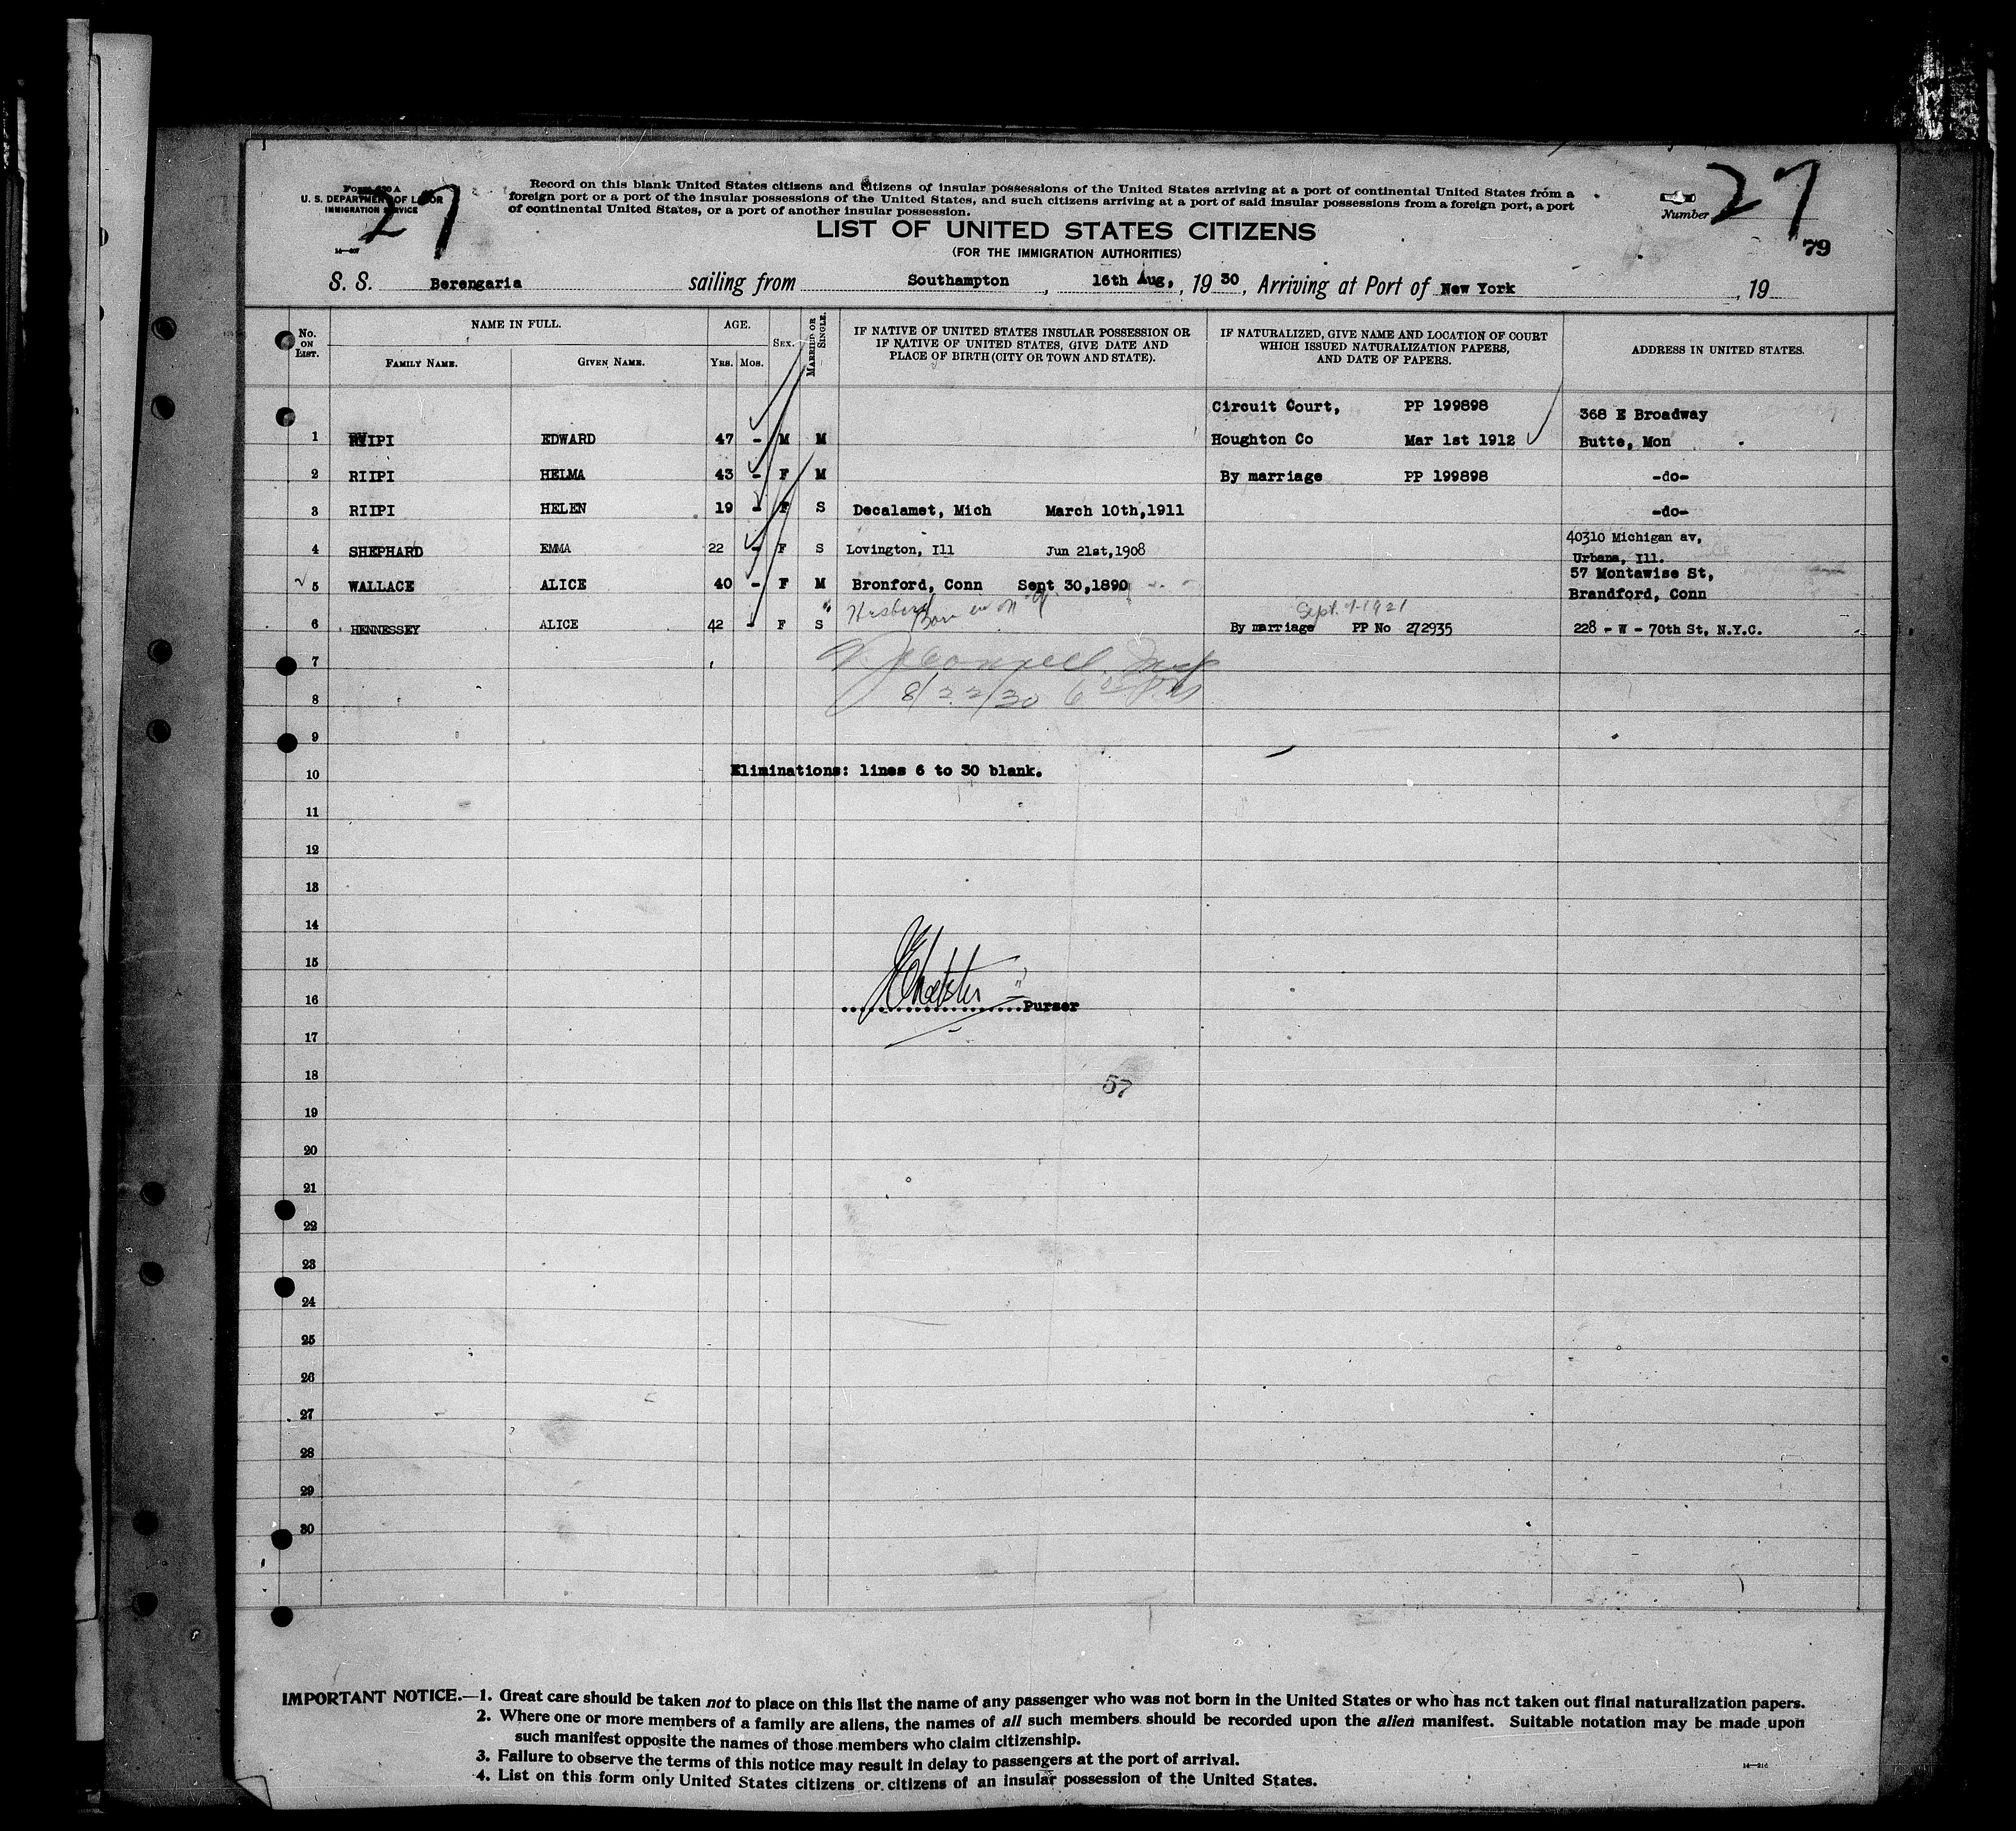 27
Form 630 A
U. S. DEPARTMENT OF LABOR
IMMIGRATION SERVICE
Record on this blank United States citizens and citizens of insular possessions of the United States arriving at a port of continental United States from a
foreign port or a port of the insular possessions of the United States, and such citizens arriving at a port of said insular possessions from a foreign port, a port
of continental United States, or a port of another insular possession.
Number 27
79
LIST OF UNITED STATES CITIZENS
(FOR THE IMMIGRATION AUTHORITIES)
S. S. Berengaria sailing from Southampton, 16th Aug, , 19 30, Arriving at Port of New York , 19
No. ON LIST. NAME IN FULL. AGE. SEX. MARRIED OR SINGLE. IF NATIVE OF UNITED STATES INSULAR POSSESSION OR IF NATIVE OF UNITED STATES, GIVE DATE AND PLACE OF BIRTH (CITY OR TOWN AND STATE). IF NATURALIZED, GIVE NAME AND LOCATION OF COURT WHICH ISSUED NATURALIZATION PAPERS, AND DATE OF PAPERS. ADDRESS IN UNITED STATES.
FAMILY NAME. GIVEN NAME. YRS. MOS.
Circuit Court, PP 199898 368 E Broadway
1 RIIPI EDWARD 47 - M M Houghton Co Mar 1st 1912 Butte, Mon
2 RIIPI HELMA 43 - F M By marriage PP 199898 -do-
3 RIIPI HELEN 19 - F S Decalamet, Mich March 10th,1911 -do-
40310 Michigan av,
4 SHEPHARD EMMA 22 - F S Lovington, Ill Jun 21st,1908 Urbana, Ill.
57 Montawise St,
5 WALLACE ALICE 40 - F M Bronford, Conn Sept 30,1890 Brandford, Conn
Husband Born in Sept. 1-1921
6 HENNESSEY ALICE 42 - F S By marriage PP No 272935 228 - W - 70th St, N.Y.C.
7
8/22/30
8
9
10 Eliminations: lines 6 to 30 blank.
11
12
13
14
15
16 Purser
17
18 57
19
20
21
22
23
24
25
26
27
28
29
30
IMPORTANT NOTICE.—1. Great care should be taken not to place on this list the name of any passenger who was not born in the United States or who has not taken out final naturalization papers.
2. Where one or more members of a family are aliens, the names of all such members should be recorded upon the alien manifest. Suitable notation may be made upon
such manifest opposite the names of those members who claim citizenship.
3. Failure to observe the terms of this notice may result in delay to passengers at the port of arrival.
4. List on this form only United States citizens or citizens of an insular possession of the United States.